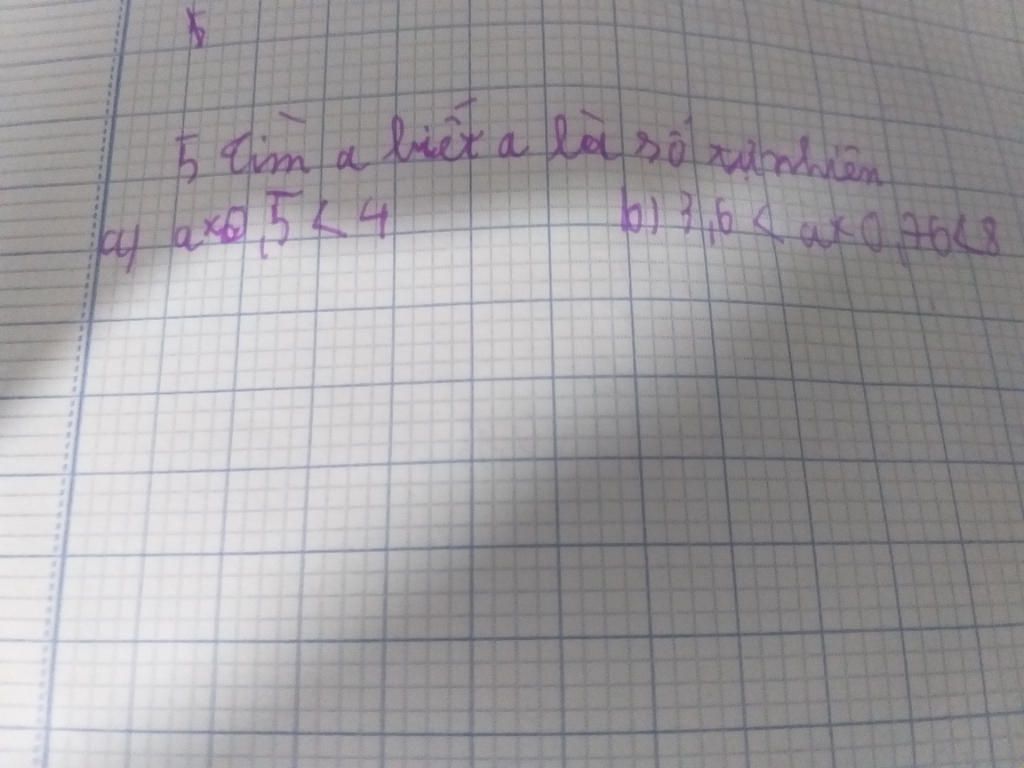 5
5 Tìm a biết a là số tự nhiên
a) a × 0,5 < 4 b) 7,6 < a × 0,76 < 8